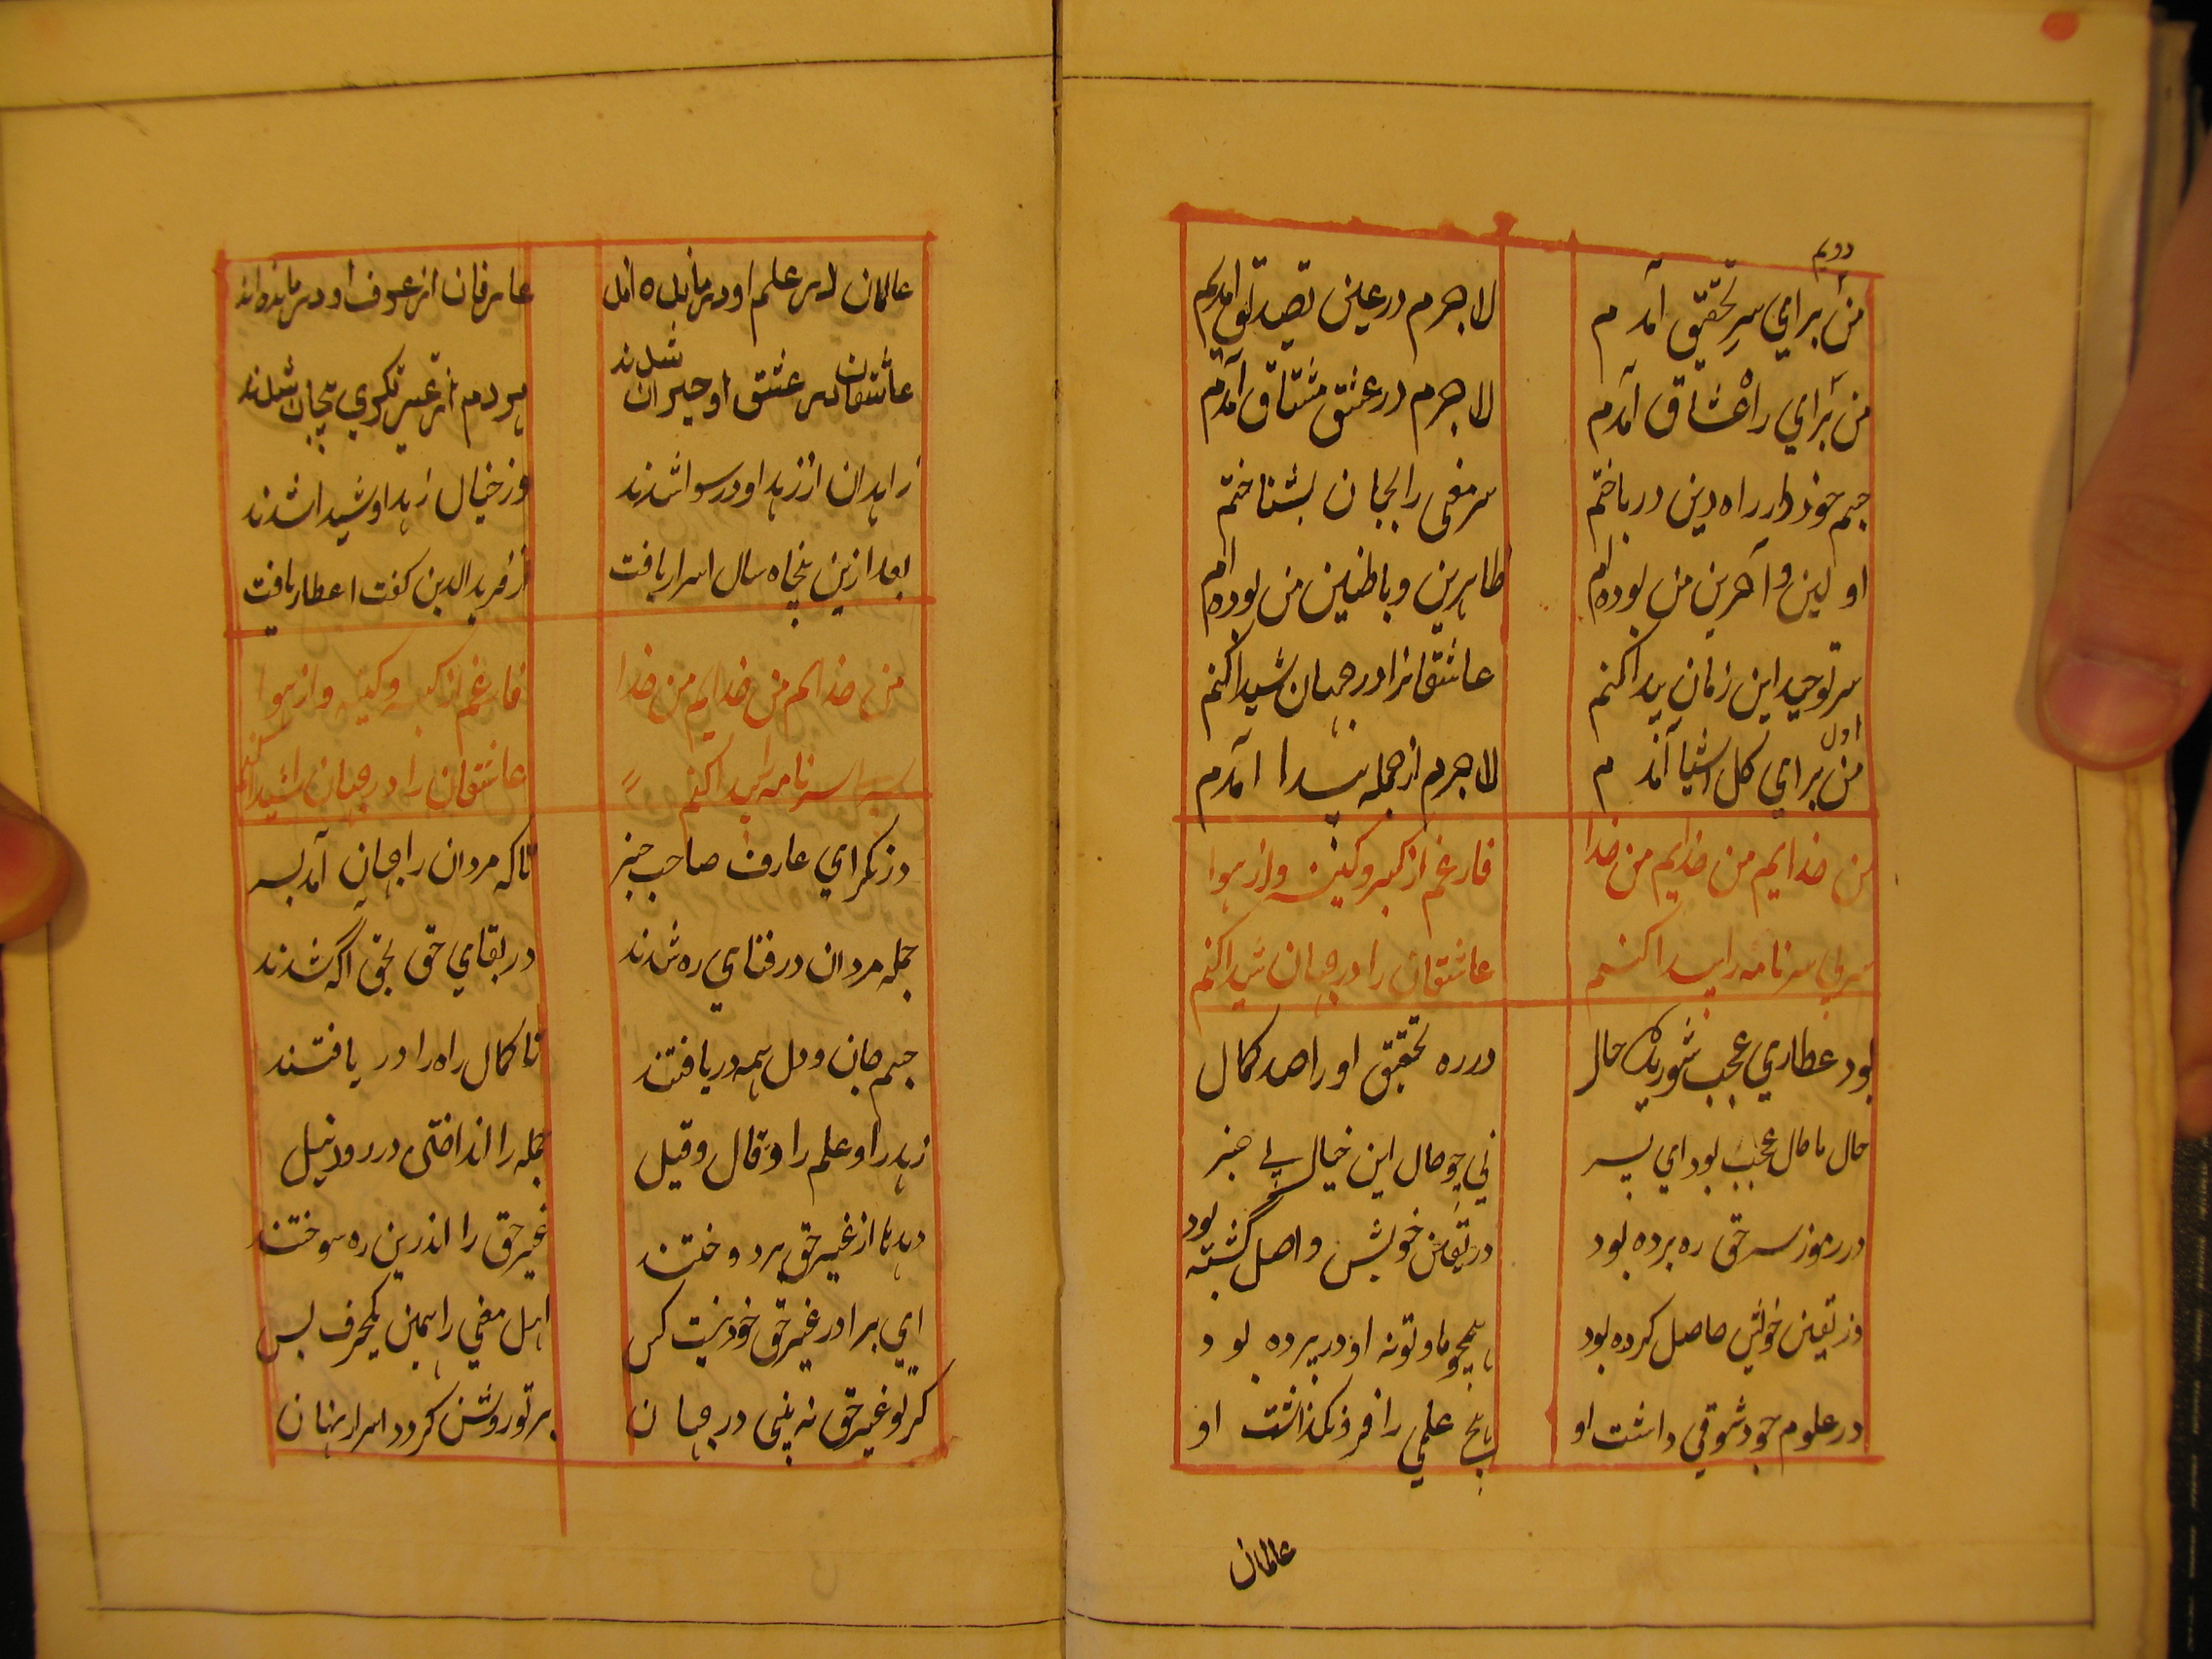 دویم
من برای سر تحقیق آمدم لاجرم در عین تصدیق آمدیم
من برای راعشاق آمدم لاجرم در عشق مشتاق آمدم
جسم خود در راه دین درباختم سر مغی را بجان بشناختم
اولین و آخرین من بوده ام ظاهرین و باطنین من بوده ام
سر توحید این زمان پیدا کنم عاشقانرا در جهان شیدا کنم
اول
من برای کل اشیا آمدم لاجرم از جمله پیدا آمدم
من خدایم من خدایم من خدا فارغم از کبر و کینه وز هوا
سر بی سرنامه را پیدا کنم عاشقان را در جهان شیدا کنم
بود عطاری عجب شوریده حال در ره تحقیق او را صد کمال
حال ما حال عجب بود ای پسر نی چو حال این خیال بی خبر
در رموز سر حق ره برده بود در یقین خویش واصل گشته بود
وز یقین خویش حاصل کرده بود همچو ما و تو نه او در پرده بود
در علوم خود شوقی داشت او هیچ علمی را فرو نگذاشت او
عالمان
عالمان در علم او درمانده اند عارفان از عرف او درمانده اند
عاشقان در عشق او حیران شدند هر دم از غیر
زاهدان از زهد او رسوا شدند وز خیال زهد او شیدا شدند
بعد ازین پنجاه سال اسرار یافت از فرید الدین کفت اعطار یافت
من خدایم من خدایم من خدا فارغم از کبر و کینه وز هوا
سر بی سرنامه را پیدا کنم عاشقان را در جهان شیدا کنم
درنکر ای عارف صاحب خبر تا که مردان را بجان آمد بسر
جمله مردان در فنای ره شدند در بقای حق بحق اگه شدند
جسم جان و دل همه دریافتند تا کمال راه را دریافتند
زهد را و علم را و قال و قیل جمله را انداختی در رود نیل
دیدها از غیر حق بردوختند غیر حق را اندرین ره سوختند
ای برادر غیر حق خود نیست کس اهل مغی را همین یکحرف بس
کر تو غیر حق نه بینی در جهان بر تو روشن کردد اسرار نهان